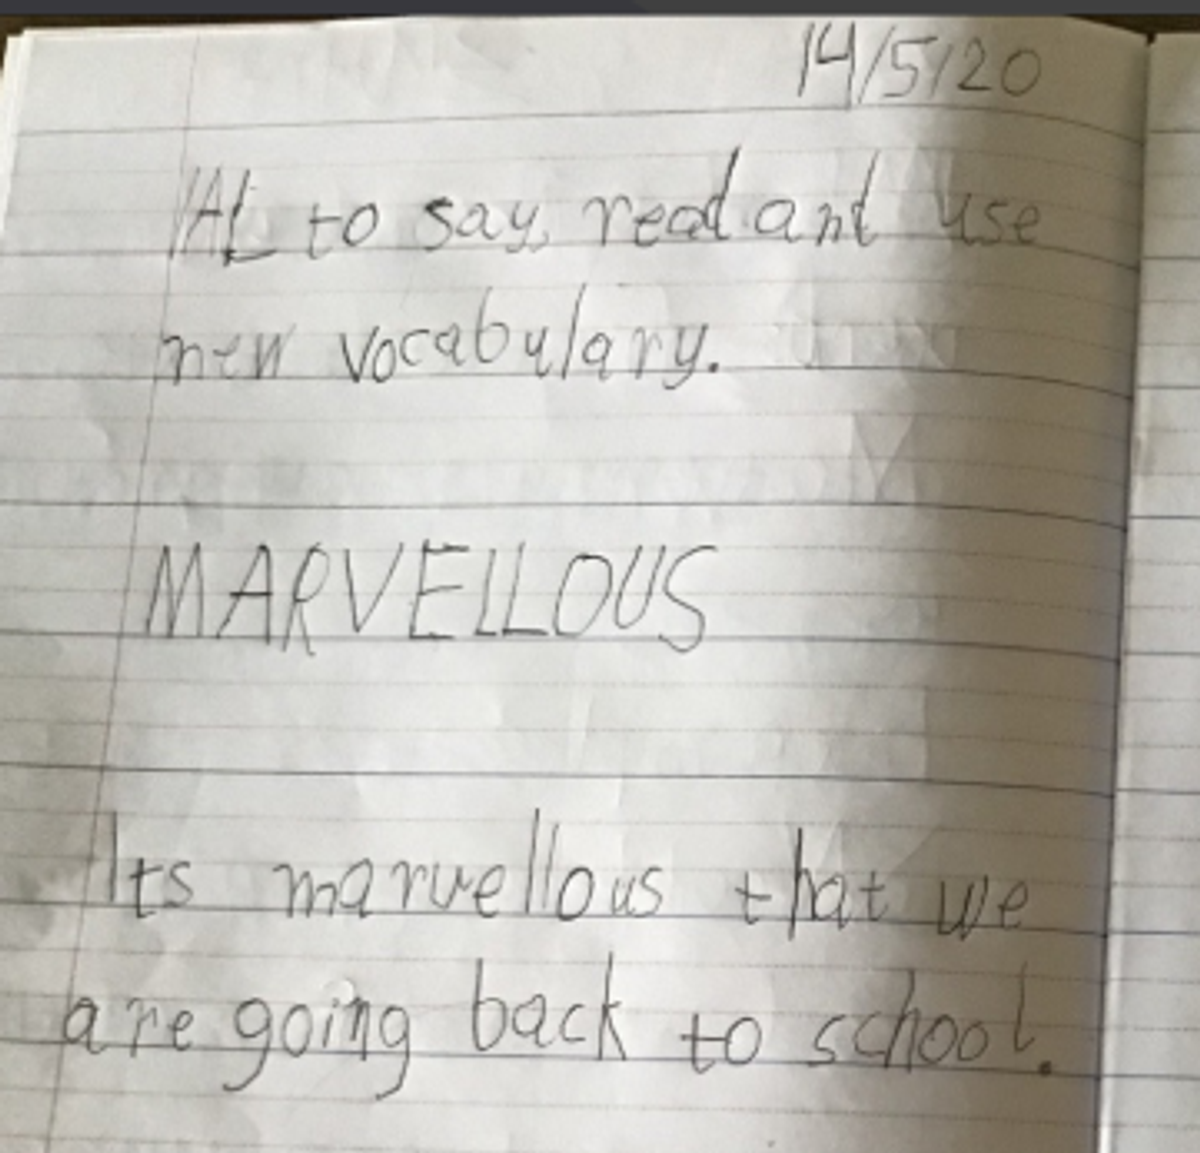 14/5/20
IAL to say, read and use
new vocabulary.
MARVELLOUS
Its marvellous that we
are going back to school.